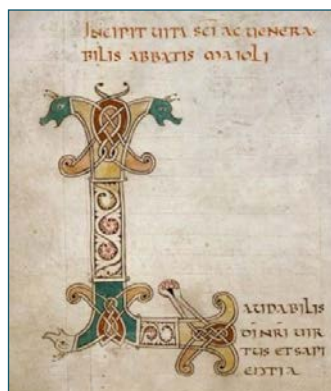 INCIPIT UITI SCI AC UENERA-
BILIS ABBATIS MAIOLI
L
AUDABILIS
DNI NRI UIR
TUS ET SAPI
ENTIA